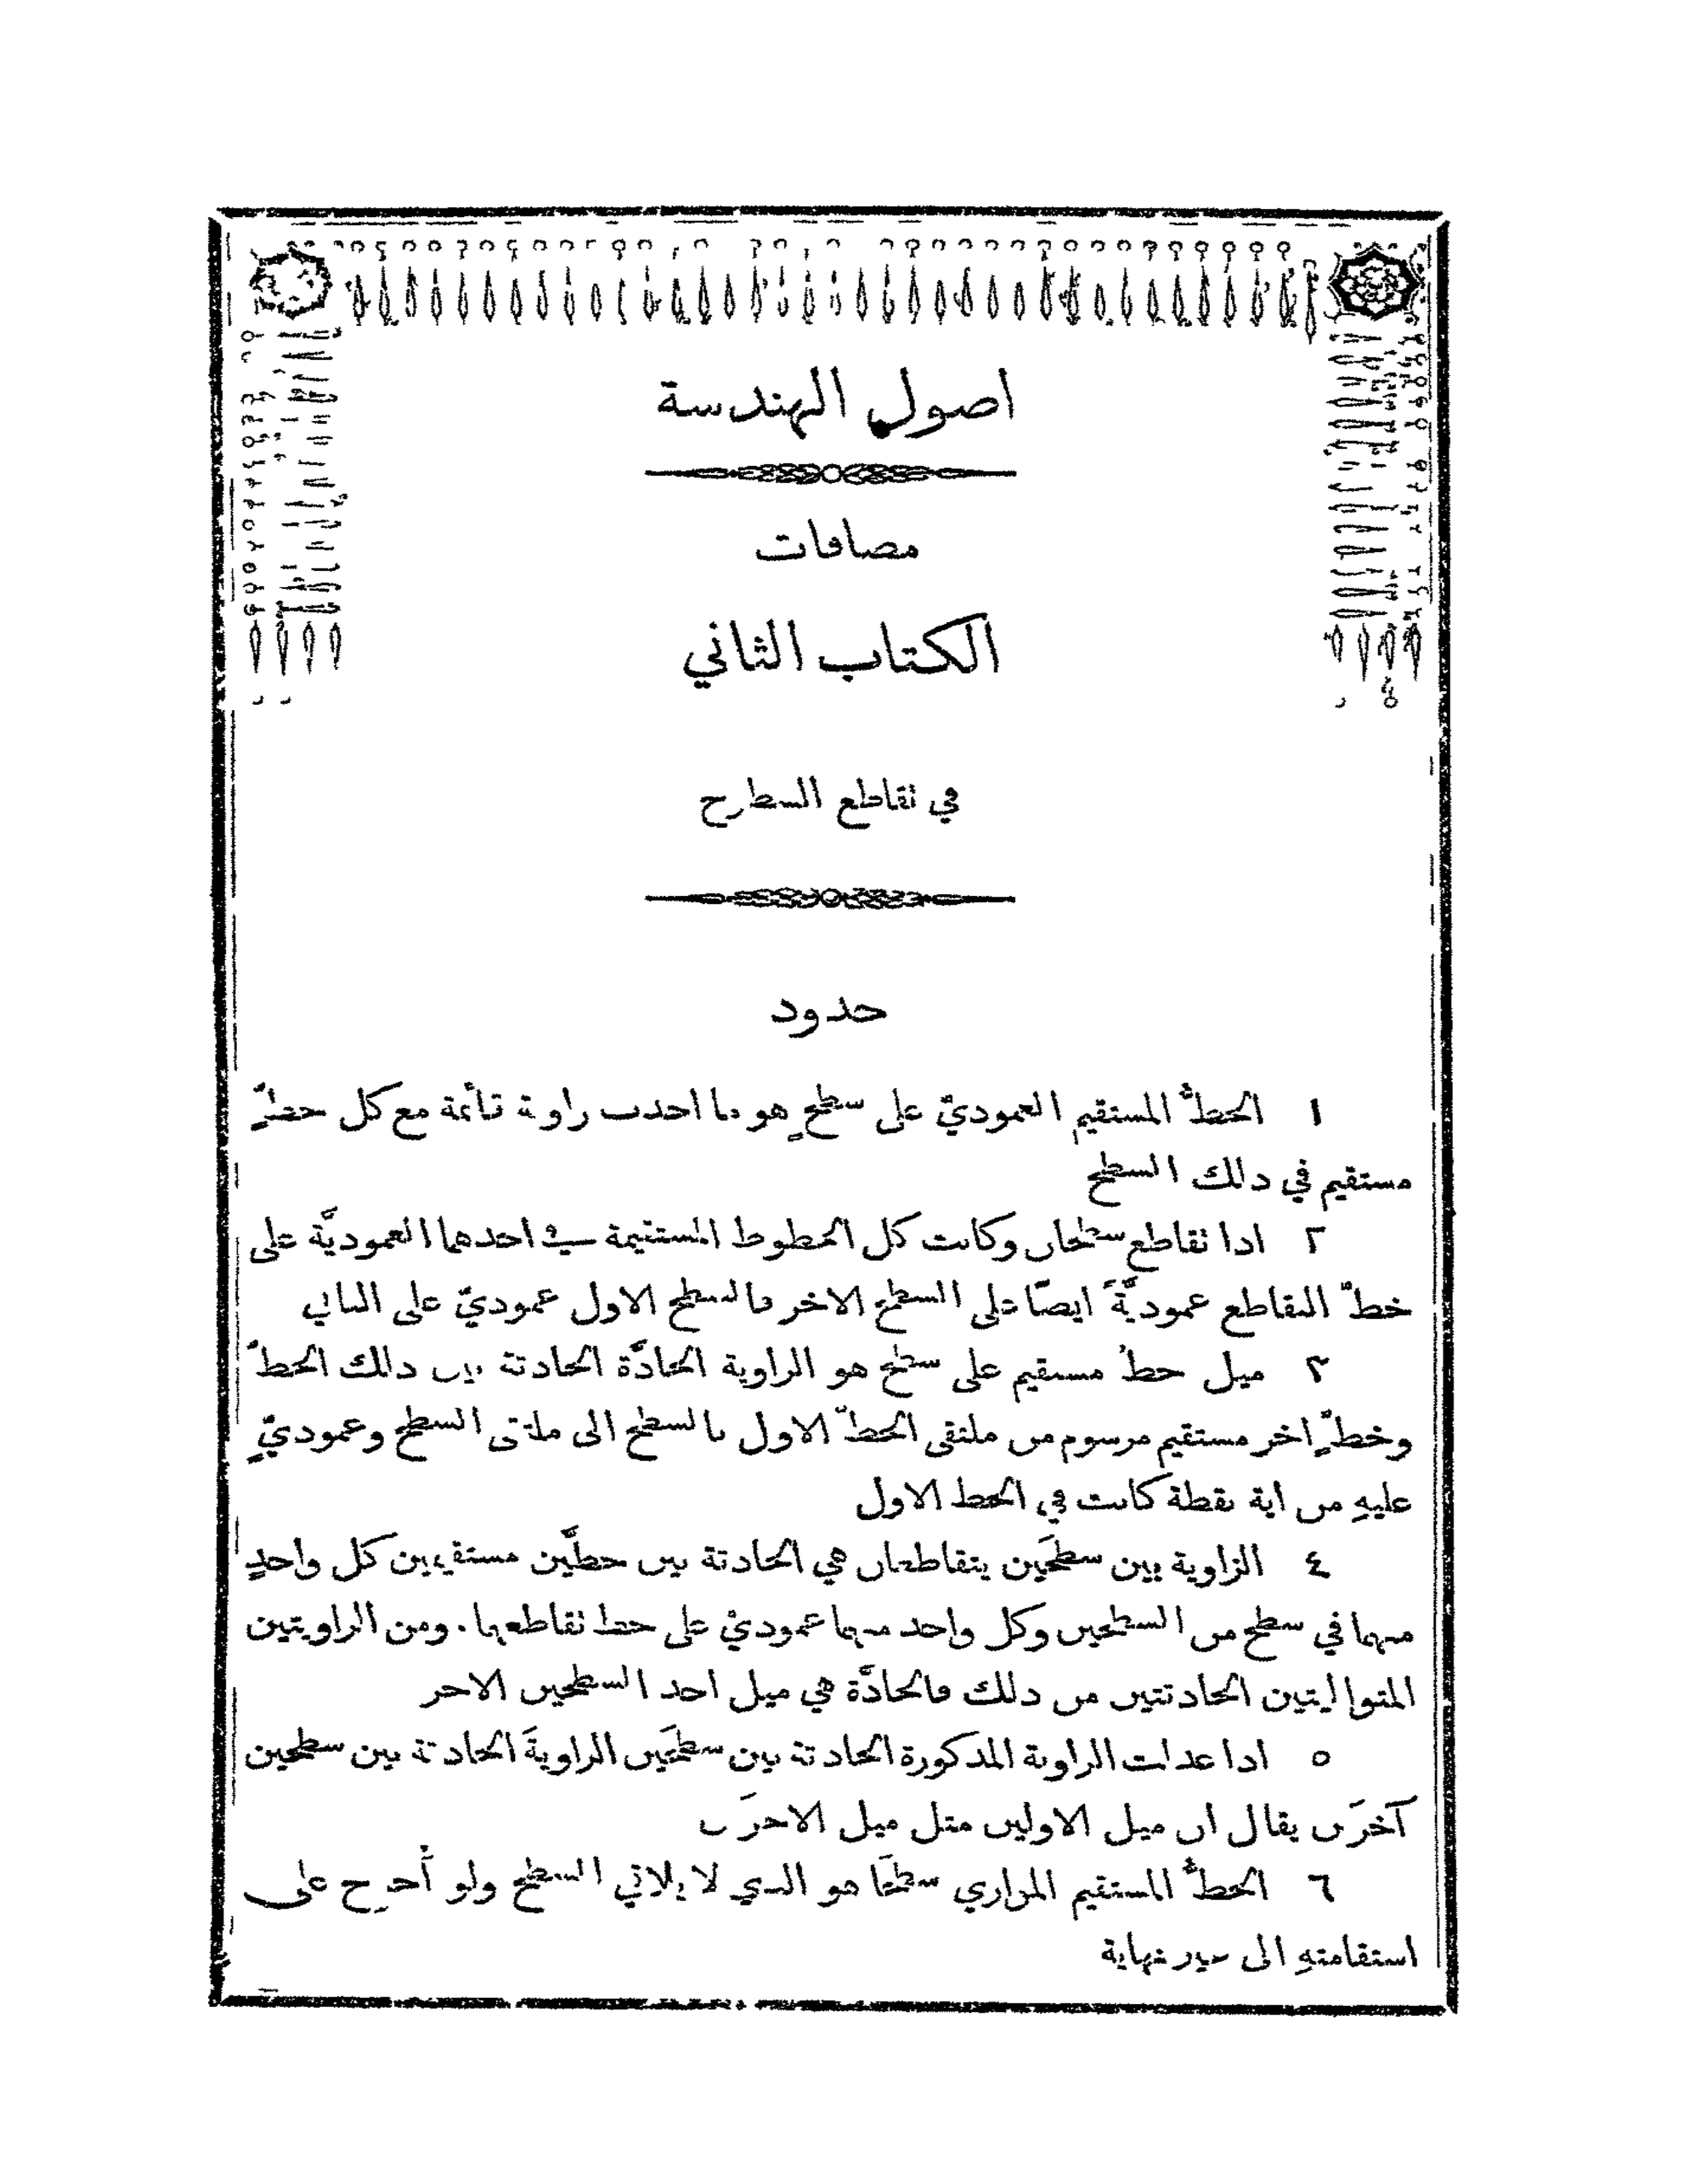 اصول الهندسة
مضافات
الكتاب الثاني
في تقاطع السطوح
حدود
١ الخطُّ المستقيم العموديّ على سطحٍ هو ما احدث زاوية قائمة مع كل خطٍّ
مستقيم في ذلك السطح
٢ اذا تقاطع سطحان وكانت كل الخطوط المستقيمة في احدهما العموديَّة على
خطّ التقاطع عموديَّةً ايضًا على السطح الاخر فالسطح الاول عموديّ على الثاني
٣ ميل خطٍّ مستقيم على سطح هو الزاوية الحادَّة الحادثة بين ذلك الخطّ
وخطٍّ اخر مستقيم مرسوم من ملتقى الخطّ الاول بالسطح الى ملتقى السطح وعموديٍّ
عليهِ من اية نقطة كانت في الخط الاول
٤ الزاوية بين سطحَين يتقاطعان هي الحادثة بين خطَّين مستقيمين كل واحدٍ
منهما في سطح من السطحين وكل واحد منهما عموديٌّ على خط تقاطعهما. ومن الزاويتين
المتواليتين الحادثتين من ذلك فالحادَّة هي ميل احد السطحين الاخر
٥ اذا عدلت الزاوية المذكورة الحادثة بين سطحَين الزاويةَ الحادثة بين سطحين
آخرَين يقال ان ميل الاولين مثل ميل الاخرَين
٦ الخطُّ المستقيم الموازي سطحًا هو الذي لا يلاقي السطح ولو أُخرِج على
استقامتهِ الى غير نهاية